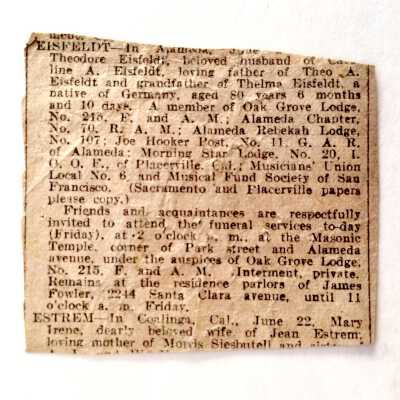 EISFELDT—In Alameda, June
Theodore Eisfeldt, beloved husband of Caro-
line A. Eisfeldt, loving father of Theo A.
Eisfeldt and grandfather of Thelma Eisfeldt, a
native of Germany, aged 80 years 6 months
and 10 days. A member of Oak Grove Lodge,
No. 215, F. and A. M.; Alameda Chapter,
No. 70, R. A. M.; Alameda Rebekah Lodge,
No. 107; Joe Hooker Post, No. 11, G. A. R.
of Alameda; Morning Star Lodge, No. 20, I.
O. O. F., of Placerville, Cal.; Musicians' Union
Local No. 6, and Musical Fund Society of San
Francisco. (Sacramento and Placerville papers
please copy.)
Friends and acquaintances are respectfully
invited to attend the funeral services to-day
(Friday), at 2 o'clock p. m., at the Masonic
Temple, corner of Park street and Alameda
avenue, under the auspices of Oak Grove Lodge,
No. 215, F. and A. M. Interment, private.
Remains at the residence parlors of James
Fowler, 2244 Santa Clara avenue, until 11
o'clock a. m. Friday.
ESTREM—In Coalinga, Cal., June 22, Mary
Irene, dearly beloved wife of Jean Estrem,
loving mother of Morris Siesbutell and